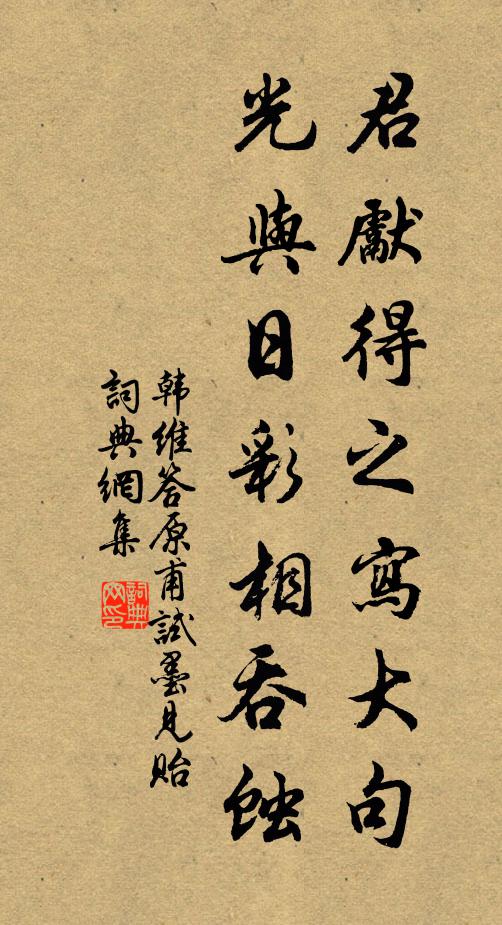 君獻得之寫大句
光與日彩相吞蝕
韩維答原甫試墨見貽
詞典網集
詞典网印